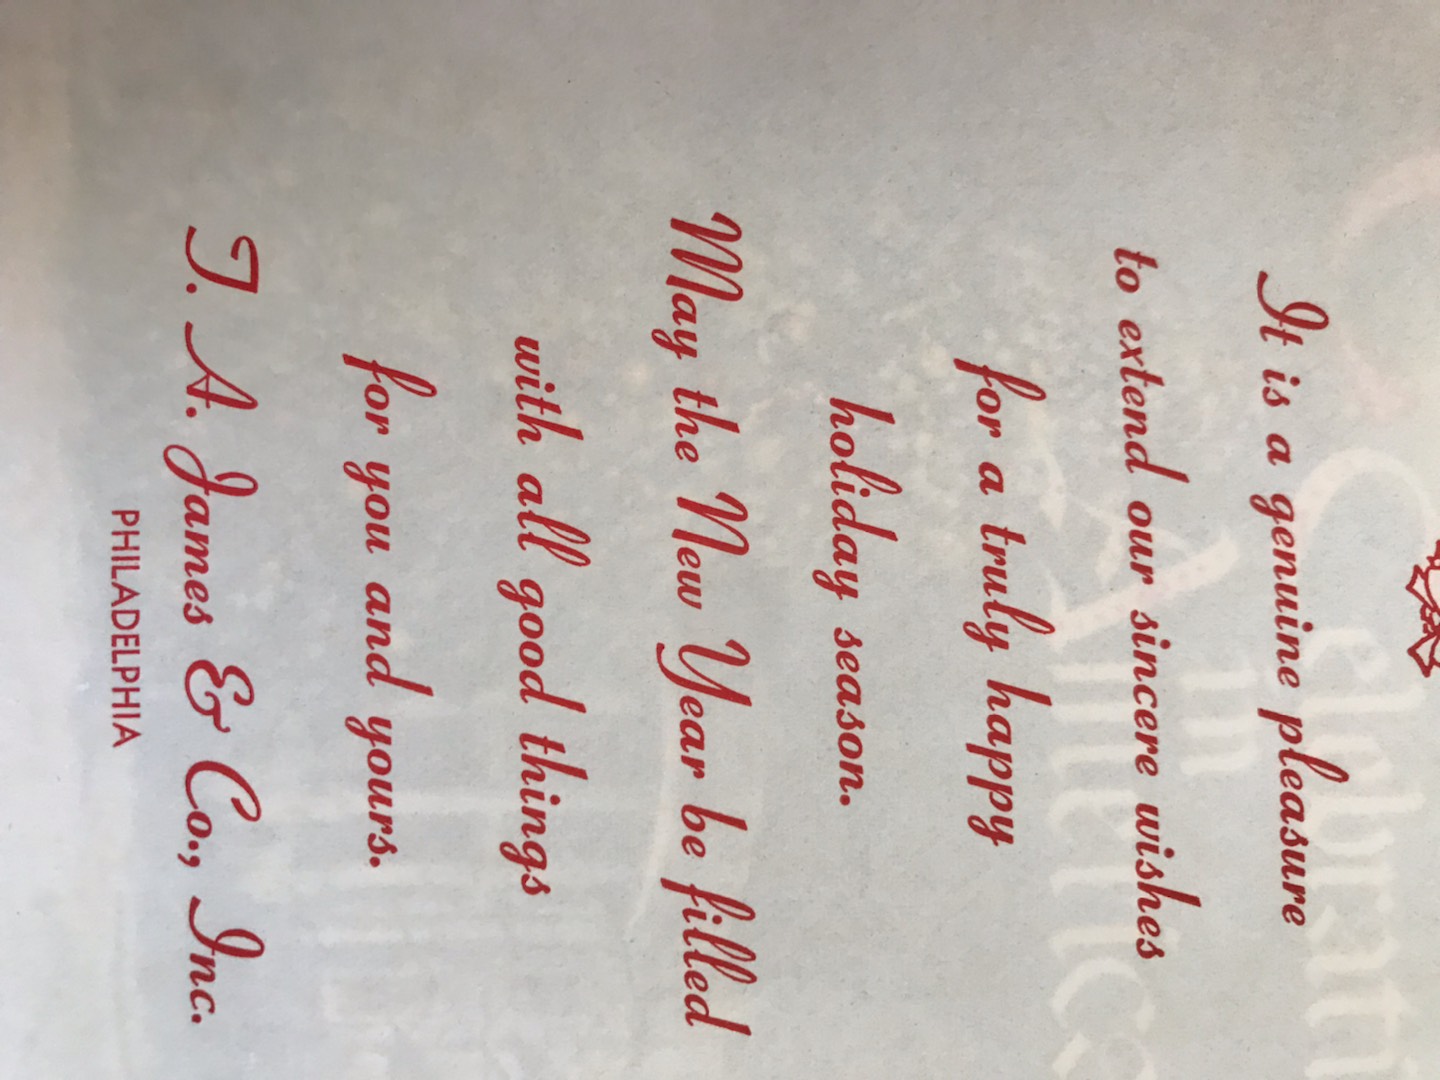 It is a genuine pleasure
to extend our sincere wishes
for a truly happy
holiday season.
May the New Year be filled
with all good things
for you and yours.
T. A. James & Co., Inc.
PHILADELPHIA